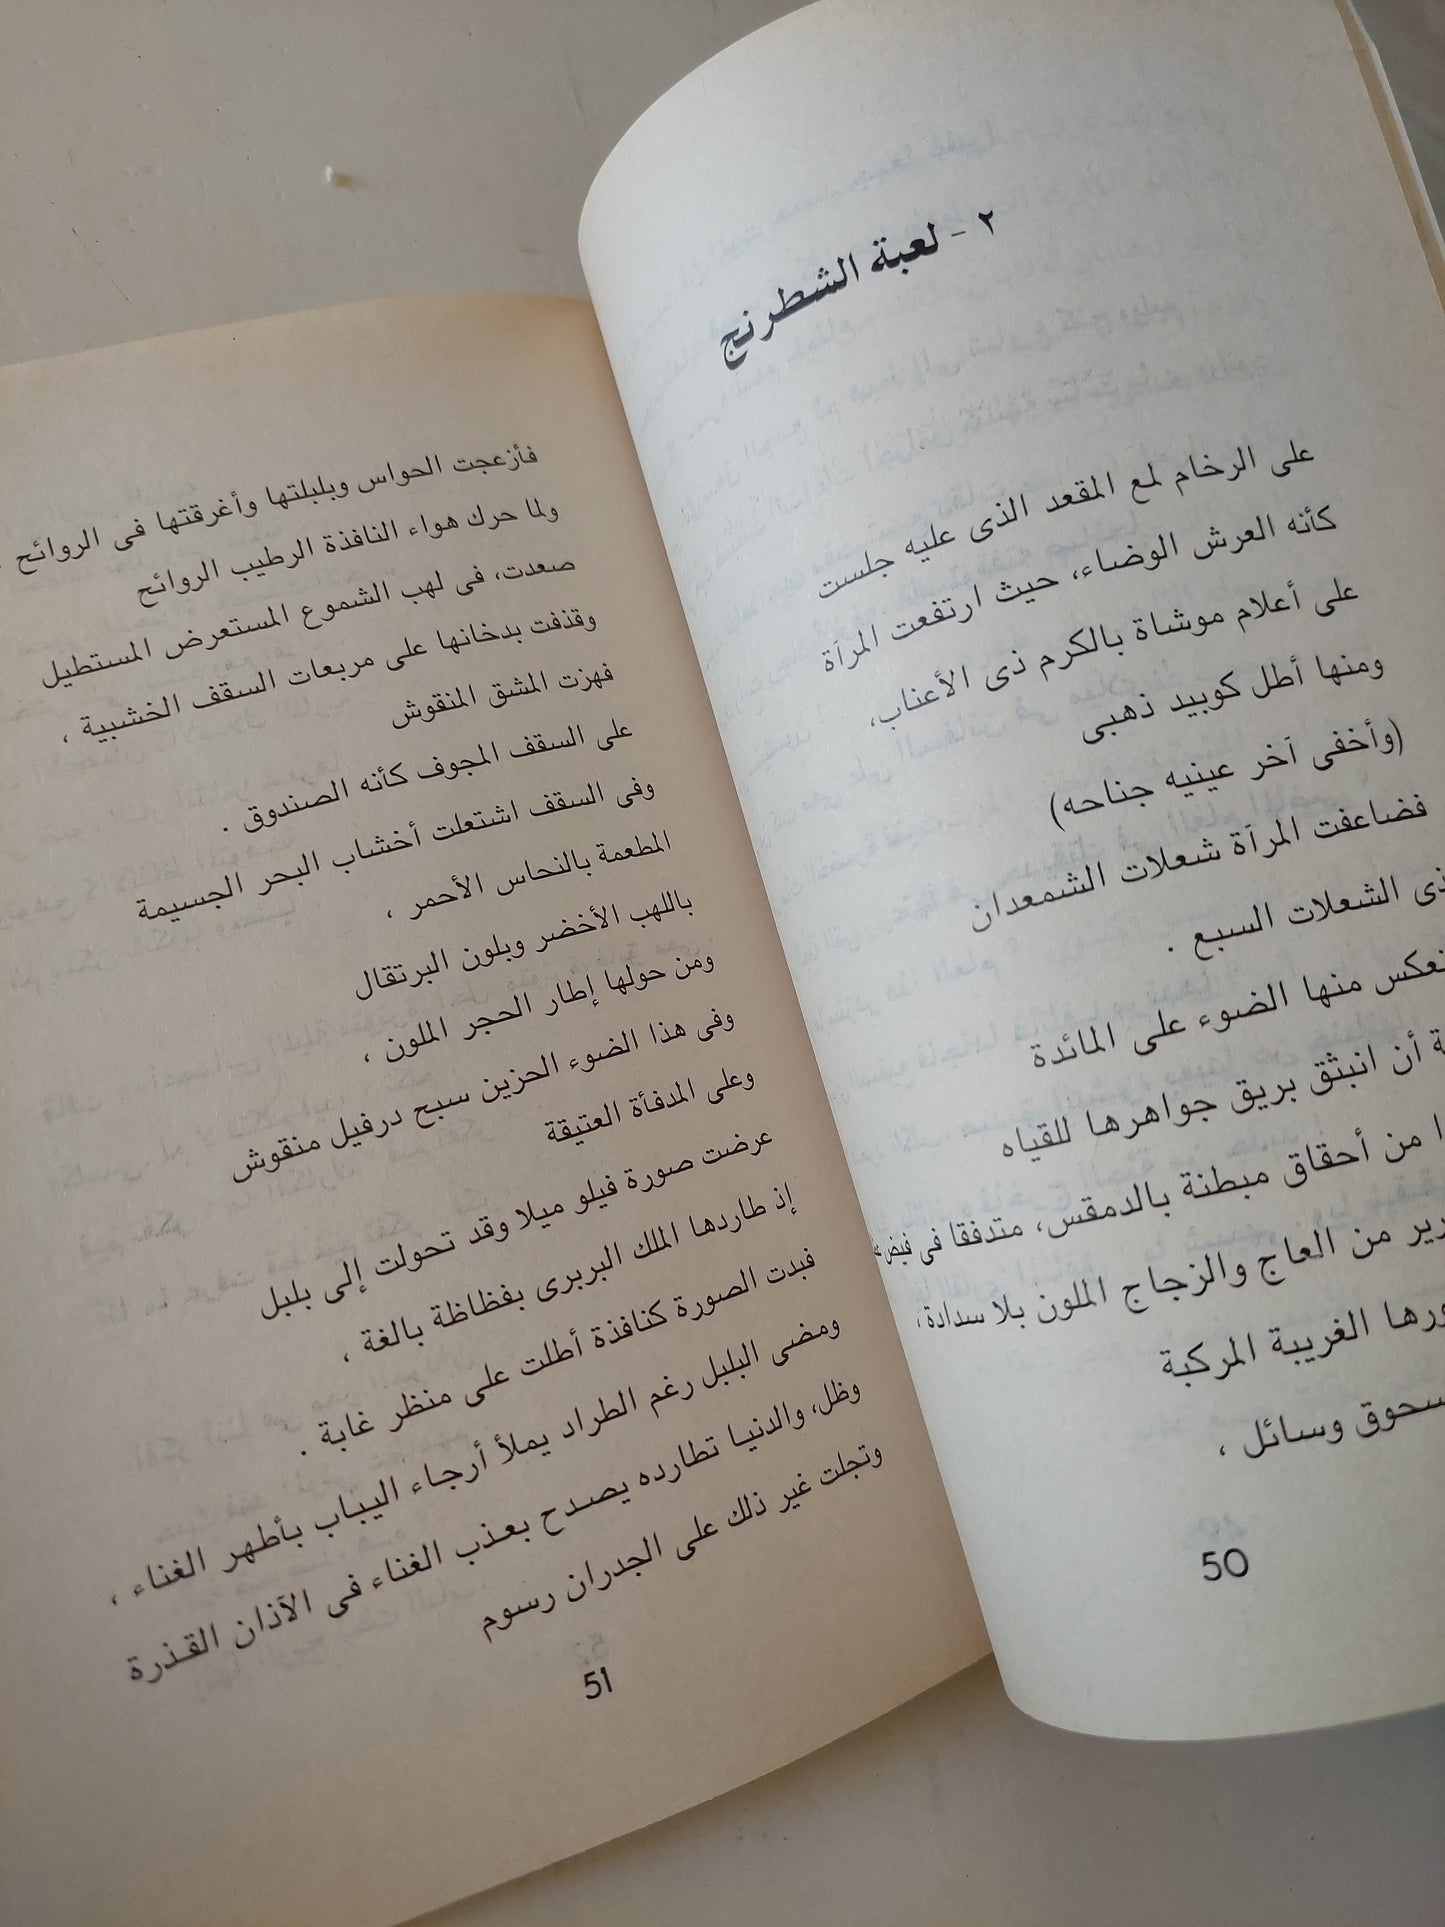 ٢ - لعبة الشطرنج
على الرخام لمع المقعد الذى عليه جلست
كأنه العرش الوضاء، حيث ارتفعت المرآة
على أعلام موشاة بالكرم ذى الأعناب،
ومنها أطل كوبيد ذهبى
(وأخفى آخر عينيه جناحه)
فضاعفت المرآة شعلات الشمعدان
ذى الشعلات السبع .
منها الضوء على المائدة
أن انبثق بريق جواهرها للقياه
من أحقاق مبطنة بالدمقس، متدفقا فى فيض
من العاج والزجاج الملون بلا سدادة،
الغريبة المركبة
وسائل ،
50
فأزعجت الحواس وبلبلتها وأغرقتها فى الروائح .
ولما حرك هواء النافذة الرطيب الروائح
صعدت، فى لهب الشموع المستعرض المستطيل
وقذفت بدخانها على مربعات السقف الخشبية ،
فهزت المشق المنقوش
على السقف المجوف كأنه الصندوق .
وفى السقف اشتعلت أخشاب البحر الجسيمة
المطعمة بالنحاس الأحمر ،
باللهب الأخضر وبلون البرتقال
ومن حولها إطار الحجر الملون ،
وفى هذا الضوء الحزين سبح درفيل منقوش
وعلى المدفأة العتيقة
عرضت صورة فيلو ميلا وقد تحولت إلى بلبل
إذ طاردها الملك البربرى بفظاظة بالغة ،
فبدت الصورة كنافذة أطلت على منظر غابة .
ومضى البلبل رغم الطراد يملأ أرجاء اليباب بأطهر الغناء ،
وظل، والدنيا تطارده يصدح بعذب الغناء فى الآذان القذرة
وتجلت غير ذلك على الجدران رسوم
51